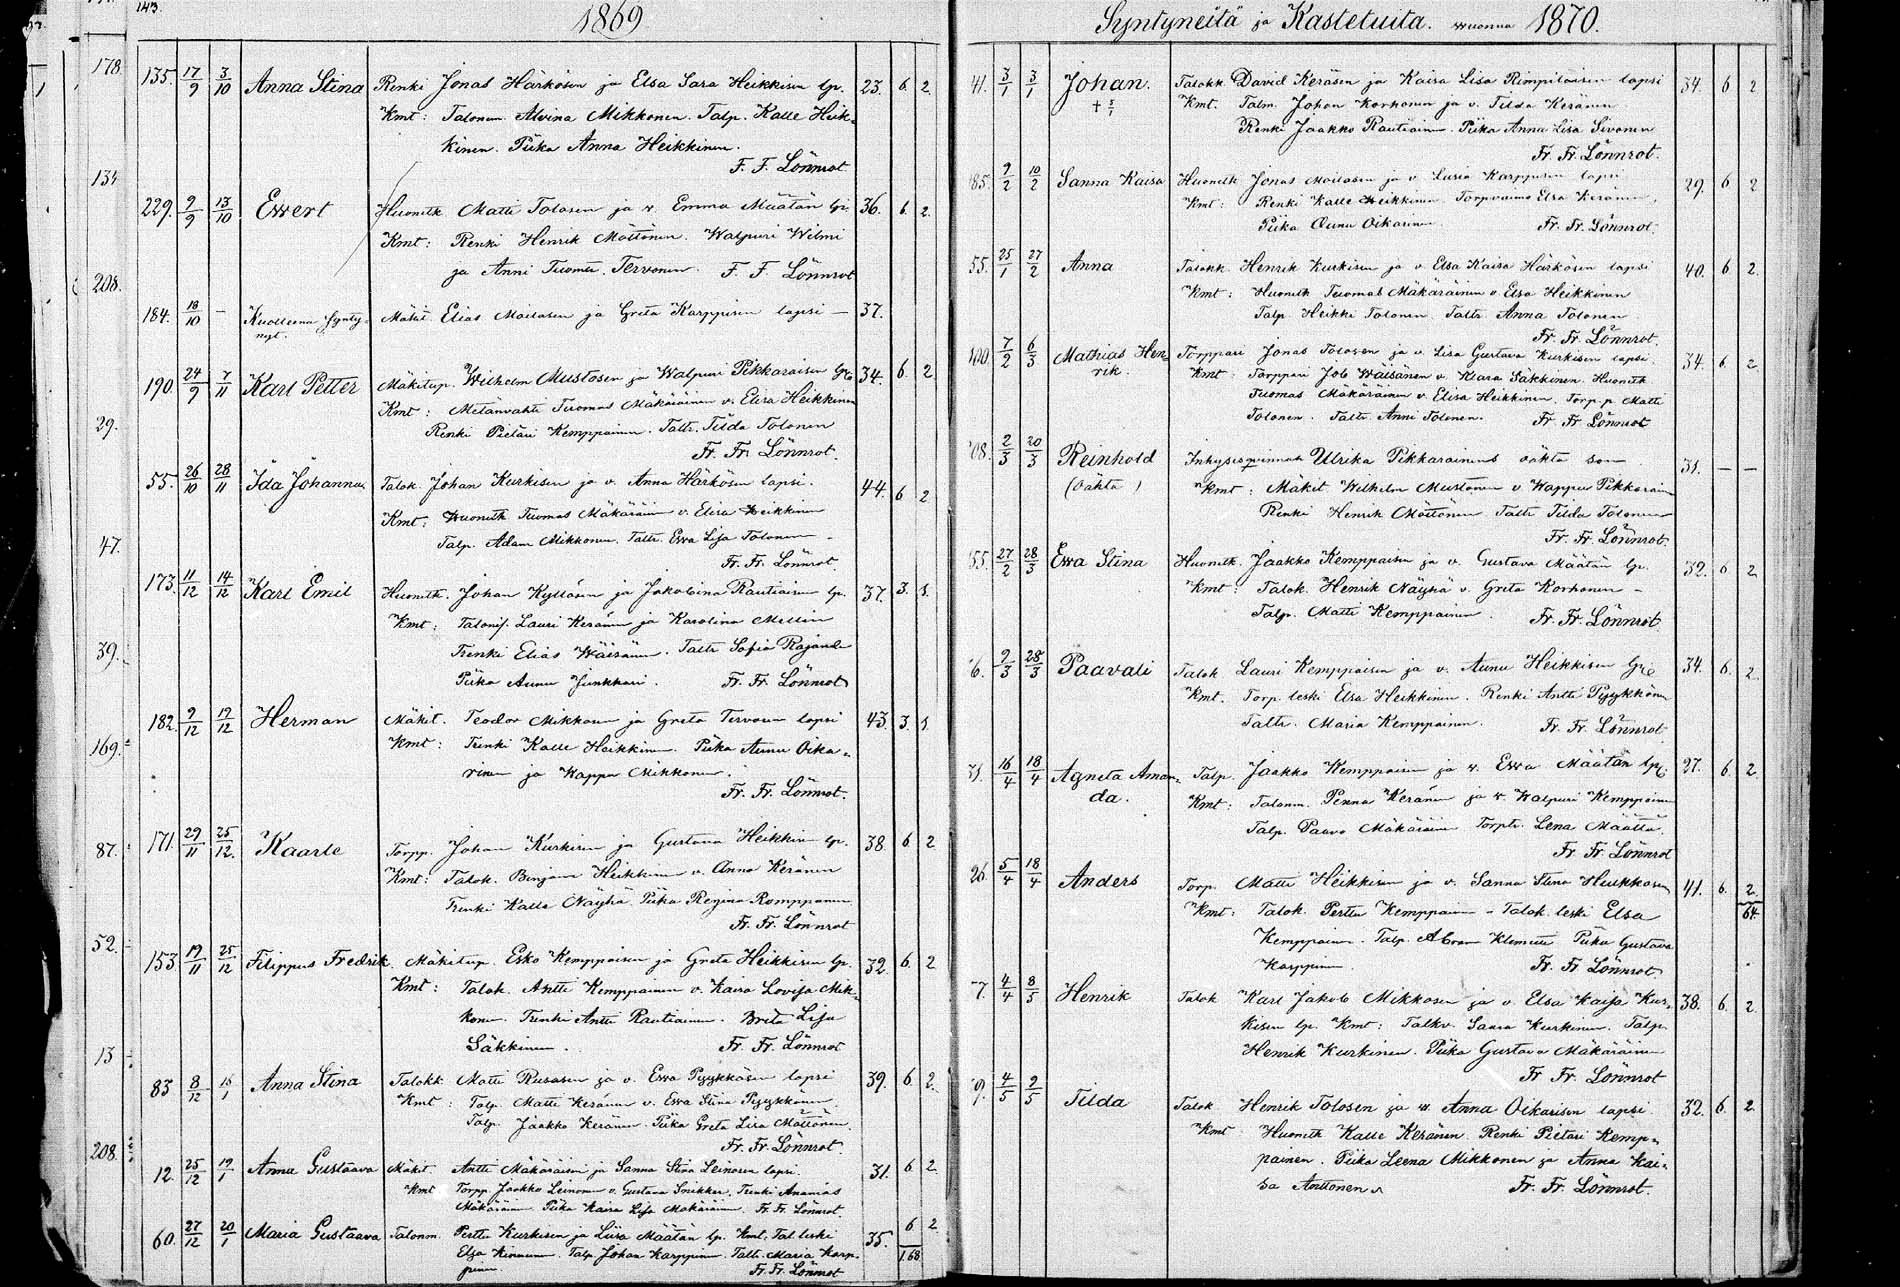 143.
1869.
178.
135. 17/9 3/10 Anna Stina Renki Jonas Härkösen ja Elsa Sara Heikkisen lp. 23. 6. 2.
Kmt: Talonem. Alvina Mikkonen. Talp. Kalle Heik-
kinen. Piika Anna Heikkinen.
F. F. Lönnrot
134
229. 9/9 13/10 Ewert Huonith Matti Tolosen ja v. Emma Määtän lp. 36. 6. 2.
Kmt: Renki Henrik Möttönen. Walpuri Wilmi
ja Anni Tervonen. F. F. Lönnrot
208.
184. 18/10 – Kuolleena synty- Mäkit. Elias Moilasen ja Greta Karppisen lapsi – 37.
nyt.
190. 24/9 7/11 Karl Petter Mäkitup. Wilhelm Mustosen ja Walpuri Pikkaraisen 34. 6. 2
Kmt: Metänvahti Tuomas Mäkäräinen v. Elisa Heikkinen
29. Renki Pietari Kemppainen. Taltr. Tilda Tolonen
Fr. Fr. Lönnrot.
55. 26/10 28/11 Ida Johanna Talok. Johan Kurkisen ja v. Anna Härkösen lapsi. 44. 6 2
Kmt: Huonith Tuomas Mäkäräinen v. Elisa Heikkinen
47. Talp. Adam Mikkonen. Taltr. Ewa Lisa Tolonen –
Fr. Fr. Lönnrot
173. 11/12 14/12 Karl Emil Huonith. Johan Kyllösen ja Jakobina Rautiaisen lp. 37. 3. 1.
Kmt: Lauri Keränen ja Karolina Mellin
39. Trenki Elias Wäisänen. Taltr Sofia Rajander
Piika Aunu Junkkari. Fr. Fr. Lönnrot
182. 9/12 19/12 Herman Mäkit. Teodor Mikkosen ja Greta Tervosen lapsi 43. 3. 1.
169. Kmt: Trenki Kalle Heikkinen. Piika Aunu Oika-
rinen ja Wappu Mikkonen.
Fr. Fr. Lönnrot.
87. 171. 29/11 25/12. Kaarle Torpp. Johan Kurkisen ja Gustava Heikkisen lp. 38. 6 2
Kmt: Talok. Benjam Heikkinen v. Anna Keränen
Trenki Kalle Näyhä. Piika Regina Romppanen
52. Fr. Fr. Lönnrot
153. 19/11 25/12 Filippus Fredrik. Mäkitup. Esko Kemppaisen ja Greta Heikkisen lp. 32. 6. 2
Kmt: Talok. Antti Kemppainen v. Kaisa Lovisa Mik-
konen. Trenki Antti Rautiainen. Brita Lisa
13 Säkkinen. Fr. Fr. Lönnrot
83 8/12 16/1 Anna Stina Talokk. Matti Rusasen ja v. Ewa Pyykkösen lapsi 39. 6 2.
Kmt: Talp. Matti Keränen v. Ewa Stina Pyykkönen
Talp. Jaakko Keränen. Piika Greta Lisa Möttönen
208. Fr. Fr. Lönnrot.
12. 25/12 19/1 Anna Gustaava Mäkit. Antti Mäkäräisen ja Sanna Stina Leinosen lapsi. 31. 6 2
Kmt Torpp. Jaakko Leinonen v. Gustava Snikker. Trenki Ananias
Mäkäräinen Piika Kaisa Lisa Mäkäräinen Fr. Fr. Lönnrot.
60. 27/12 20/1 Maria Gustaava Talonm. Perttu Kurkisen ja Liisa Määtän lp. Kmt. Tal. leski 35. 6 2
Elsa Kinnunen. Talp. Johan Karppinen. Taltr. Maria Karp- 168
pinen. Fr. Fr. Lönnrot
Syntyneitä ja Kastetuita. vuonna 1870.
41. 3/1 3/1 Johan. Talokk David Keräsen ja Kaisa Lisa Rimpiläisen lapsi 34. 6 2
Kmt. Talm. Johan Korhonen ja v. Tilda Keränen
Renki Jaakko Rautiainen. Piika Anna Lisa Sivonen
Fr. Fr. Lönnrot.
185. 9/2 10/2 Sanna Kaisa Huonith Jonas Moilasen ja v. Luisa Karppisen lapsi 29. 6 2
Kmt: Renki Kalle Heikkinen. Torpvaimo Elsa Keränen,
Piika Aunu Oikarinen. Fr. Fr. Lönnrot.
55. 25/1 27/2 Anna Talokk. Henrik Kurkisen ja v. Elsa Kaisa Härkösen lapsi 40. 6 2.
Kmt: Huonith Tuomas Mäkäräinen v. Elsa Heikkinen
Talp. Heikki Tolonen. Taltr. Anna Tolonen.
Fr. Fr. Lönnrot.
100. 7/2 6/3 Mathias Hen- Torppari Jonas Tolosen ja v. Lisa Gustava Kurkisen lapsi. 34. 6. 2
rik. Kmt: Torppari Job Wäisänen v. Klara Säkkinen. Huonith
Tuomas Mäkäräinen v. Elisa Heikkinen. Torp. p. Matti
Tolonen. Taltr. Anni Tolonen. Fr. Fr. Lönnrot
108. 2/3 20/3 Reinhold Inhysis Ulrika Pikkaraisens oäkta son 31. – –
(oäkta) Kmt: Mäkit Wilhelm Mustonen v Wappu Pikkarain
Renki Henrik Möttönen Taltr Tilda Tolonen
Fr. Fr. Lönnrot.
155. 27/2 28/3 Ewa Stina Huonith. Jaakko Kemppaisen ja v. Gustava Määtän lp. 32. 6 2
Kmt: Talok. Henrik Näyhä v. Greta Korhonen –
Talp. Matti Kemppainen. Fr. Fr. Lönnrot.
6. 9/3 28/3 Paavali Talok Lauri Kemppaisen ja v. Aunu Heikkisen 34. 6. 2.
Kmt. Torp. leski Elsa Heikkinen. Renki Antti Pyykkönen
Taltr. Maria Kemppainen. Fr. Fr. Lönnrot
16/4 18/4 Agneta Aman- Talp. Jaakko Kemppaisen ja v. Ewa Määtän lp. 27. 6. 2
da. Kmt: Talonm. Penna Keränen ja v. Walpuri Kemppainen
Talp. Paavo Mäkäräinen Torptr. Lena Määttä.
Fr. Fr. Lönnrot
26. 5/4 18/4 Anders Torp. Matti Heikkisen ja v. Sanna Stina Heikkosen 41. 6. 2.
Kmt: Talok. Perttu Kemppainen – Talok. leski Elsa 64.
Kemppainen. Talp. Abram Klemetti Piika Gustava
Karppinen. Fr. Fr. Lönnrot
7. 4/4 8/5 Henrik Talok Karl Jakob Mikkosen ja v. Elsa Kaisa Kur- 38. 6. 2.
kisen lp. Kmt: Talkv. Saara Kurkinen. Talp.
Henrik Kurkinen. Piika Gustava Mäkäräinen
Fr Fr. Lönnrot
9. 4/5 9/5 Tilda Talok Henrik Tolosen ja v. Anna Oikarisen lapsi 32. 6. 2.
Kmt Huonith Kalle Keränen. Renki Pietari Kemp-
painen. Piika Leena Mikkonen ja Anna Kai-
sa Anttonen Fr. Fr. Lönnrot.